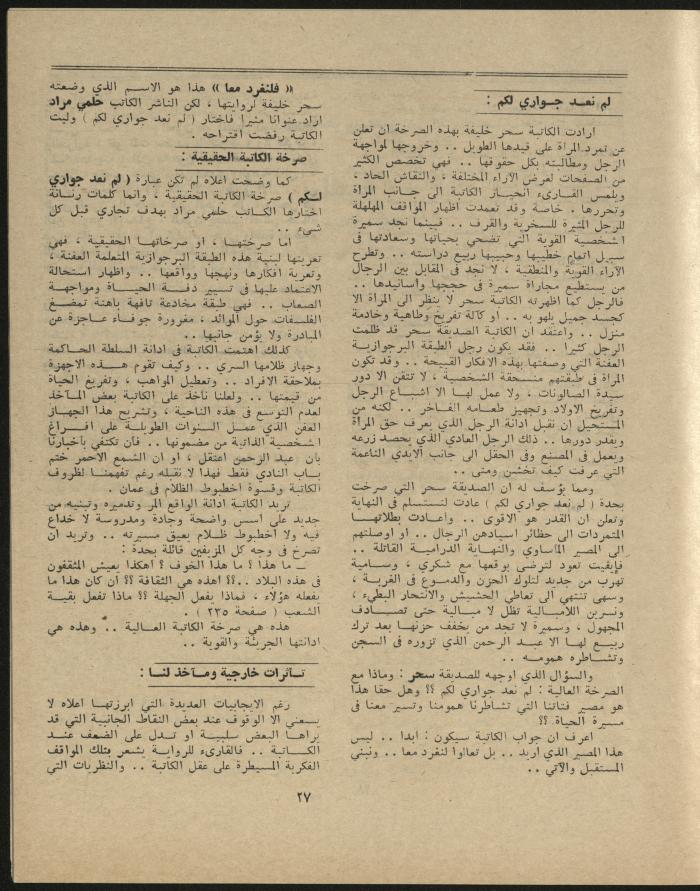 لم نعـد جـواري لكم :
ارادت الكاتبة سحر خليفة بهذه الصرخة ان تعلن
عن تمرد المرأة على قيدها الطويل .. وخروجها لمواجهة
الرجل ومطالبته بكل حقوقها .. فهي تخصص الكثير
من الصفحات لعرض الآراء المختلفة ، والنقاش الحاد ،
ويلمس القارىء انحياز الكاتبة الى جانب المرأة
وتحررها . خاصة وقد تعمدت اظهار المواقف المهلهلة
للرجل المثيرة للسخرية والقرف .. فبينما نجد سميرة
الشخصية القوية التي تضحي بحياتها وسعادتها في
سبيل اتمام خطيبها وحبيبها ربيع دراسته .. وتطرح
الآراء القوية والمنطقية ، لا نجد في المقابل بين الرجال
من يستطيع مجاراة سميرة في حججها واسانيدها ..
فالرجل كما اظهرته الكاتبة سحر لا ينظر الى المرأة الا
كجسد جميل يلهو به .. او كآلة تفريخ وطاهية وخادمة
منزل .. واعتقد ان الكاتبة الصديقة سحر قد ظلمت
الرجل كثيرا .. فقد يكون رجل الطبقة البرجوازيـة
العفنة التي وصفتها بهذه الافكار القبيحة .. وقد تكون
المرأة في طبقتهم منسحقة الشخصية ، لا تتقن الا دور
سيدة الصالونات ، ولا عمل لهـا الا اشبـاع الرجل
وتفريخ الاولاد وتجهيز طعـامه الفـاخر .. لكنه من
المستحيل ان نقبل ادانة الرجل الذي يعرف حق المرأة
ويقدر دورها .. ذلك الرجل العادي الذي يحصد زرعه
ويعمل في المصنع وفي الحقل الى جانب الايدي الناعمة
التي عرفت كيف تخشن ومتى ..
ومما يؤسف له ان الصديقة سحر التي صرخت
بحدة ( لم نعد جواري لكم ) عادت لتستسلم في النهاية
وتعلن ان القدر هو الاقوى .. واعـادت بطلاتهـا
المتمردات الى حظائر اسيادهن الرجال .. او اوصلتهم
الى المصير المأساوي والنهـاية الدرامية القاتلة ..
فإيفيت تعود لترضى بوقعها مع شكري ، وسـامية
تهرب من جديد لتلوك الحزن والدمـوع في الغربـة ،
وسهى تنتهي الى تعاطي الحشيش والانتحار البطيء ،
ونسرين اللامبـالية تظل لا مبـالية حتى تصـادف
المجهول ، وسميرة لا تجد من يخفف حزنهـا بعد ترك
ربيـع لهـا الا عبـد الرحمن الذي تزوره في السجن
وتشـاطره همومه ..
والسؤال الذي اوجهه للصديقة سحر : وماذا مع
الصرخة العالية : لم نعد جواري لكم ؟؟ وهل حقا هذا
هو مصير فتاتنا التي تشاطرنا همومنا وتسير معنا في
مسيرة الحياة ؟؟
اعرف ان جواب الكاتبة سيكون : ابدا .. ليس
هذا المصير الذي اريد .. بل تعالوا لنفرد معا .. ونبني
المستقبل والآتي ..
« فلنغرد معا » هذا هو الاسـم الذي وضعته
سحر خليفة لروايتها ، لكن الناشر الكاتب حلمي مراد
اراد عنوانا مثيرا فاختار ( لم نعد جواري لكم ) وليت
الكاتبة رفضت اقتراحه .
صرخة الكاتبة الحقيقية :
كما وضحت اعلاه لم تكن عبارة ( لم نعد جواري
لـكم ) صرخة الكاتبة الحقيقية ، وانما كلمات رنـانة
اختارها الكـاتب حلمي مراد بهدف تجاري قبل كل
شيء ..
اما صرختهـا ، او صرخاتهـا الحقيقية ، فهي
تعريتها لبنية هذه الطبقة البرجوازية المتعلمة العفنة ،
وتعرية افكارها ونهجها وواقعها .. واظهار استحالة
الاعتماد عليها في تسيير دفـة الحيـاة ومواجهـة
الصعاب .. فهي طبقة مخادعة تافهة باهتة تمضـغ
الفلسفات حول الموائد ، مغرورة جوفـاء عـاجزة عن
المبادرة ولا يؤمن جانبها ..
كذلك اهتمت الكاتبة في ادانة السلطة الحـاكمة
وجهاز ظلامها السري .. وكيف تقوم هـذه الاجهزة
بملاحقة الافراد .. وتعطيل المواهب ، وتفريغ الحياة
من قيمتها .. ولعلنا نأخذ على الكاتبة بعض المـآخذ
لعدم التوسع في هذه الناحية ، وتشريح هذا الجهـاز
العفن الذي عمـل السنوات الطويلـة على افـراغ
الشخصية الذاتية من مضمونها .. فأن تكتفي بأخبارنا
بأن عبد الرحمن اعتقل ، او ان الشمع الاحمر ختم
بـاب النادي فقط فهذا لا نقبله رغم تفهمنـا لظروف
الكاتبة وقسوة اخطبوط الظلام في عمان .
تريد الكاتبة ادانة الواقع المر وتدميره وتبنيه من
جديد على اسس واضحة وجادة ومدروسة لا خداع
فيه ولا اخطبوط ظـلام يعيق مسيرته .. وتريد ان
تصرخ في وجه كل المزيفين قائلة بحدة :
ـ ما هذا ؟ ما هذا الخوف ؟ اهكذا يعيش المثقفون
في هذه البلاد ..؟؟ اهذه هي الثقافة ؟؟ ان كان هذا ما
يفعله هؤلاء ، فماذا يفعل الجهلة ؟؟ ماذا تفعل بقيـة
الشعب ( صفحة ٢٣٥ ) .
هذه هي صرخة الكاتبة العـالية .. وهذه هي
ادانتها الجريئة والقوية ..
تـأثرات خارجية ومـآخذ لنـا :
رغم الايجابيات العديدة التي ابرزتهـا اعلاه لا
يسعني الا الوقوف عند بعض النقاط الجانبية التي قد
يراهـا البعض سلبية او تـدل على الضعف عنـد
الكـاتبة .. فالقارىء للروايـة يشعر بتلك المواقف
الفكرية المسيطرة على عقل الكاتبة .. والنظريات التي
٢٧